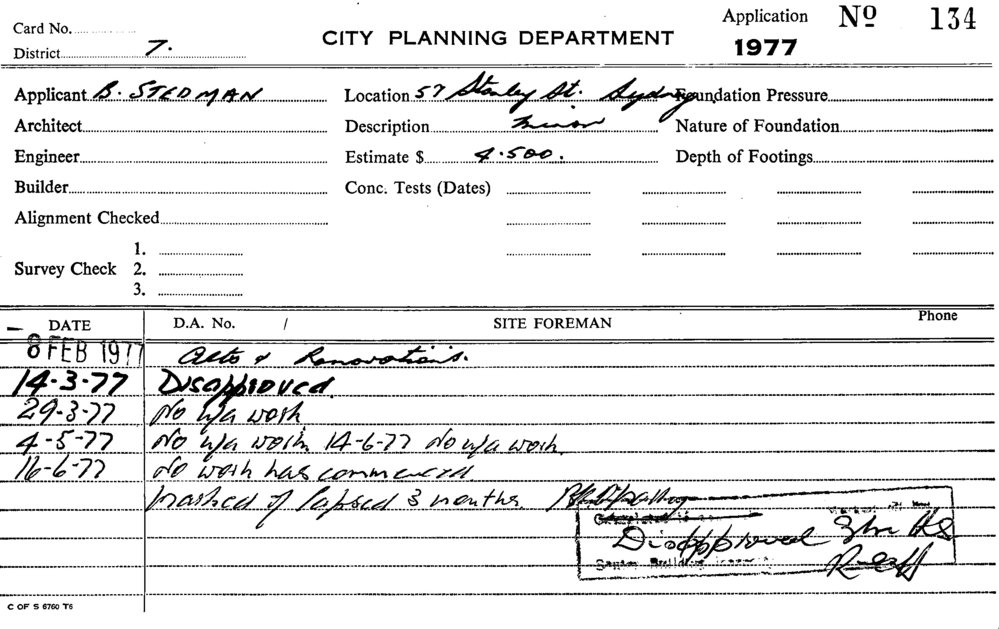 Card No.
District 7.
CITY PLANNING DEPARTMENT
Application Nº 134
1977
Applicant B. STEDMAN
Location 57 Stanley St. Sydney
Foundation Pressure
Architect
Description Minor
Nature of Foundation
Engineer
Estimate $ 4.500.
Depth of Footings
Builder
Conc. Tests (Dates)
Alignment Checked
Survey Check
1.
2.
3.
DATE
D.A. No. /
SITE FOREMAN
Phone
8 FEB 1977 Alts & Renovations.
14-3-77 Disapproved.
29-3-77 No u/a work
4-5-77 No u/a work. 14-6-77 No u/a work.
16-6-77 No work has commenced
lapsed 3 months.
Disapproved
Senior Building
C OF S 6760 T6